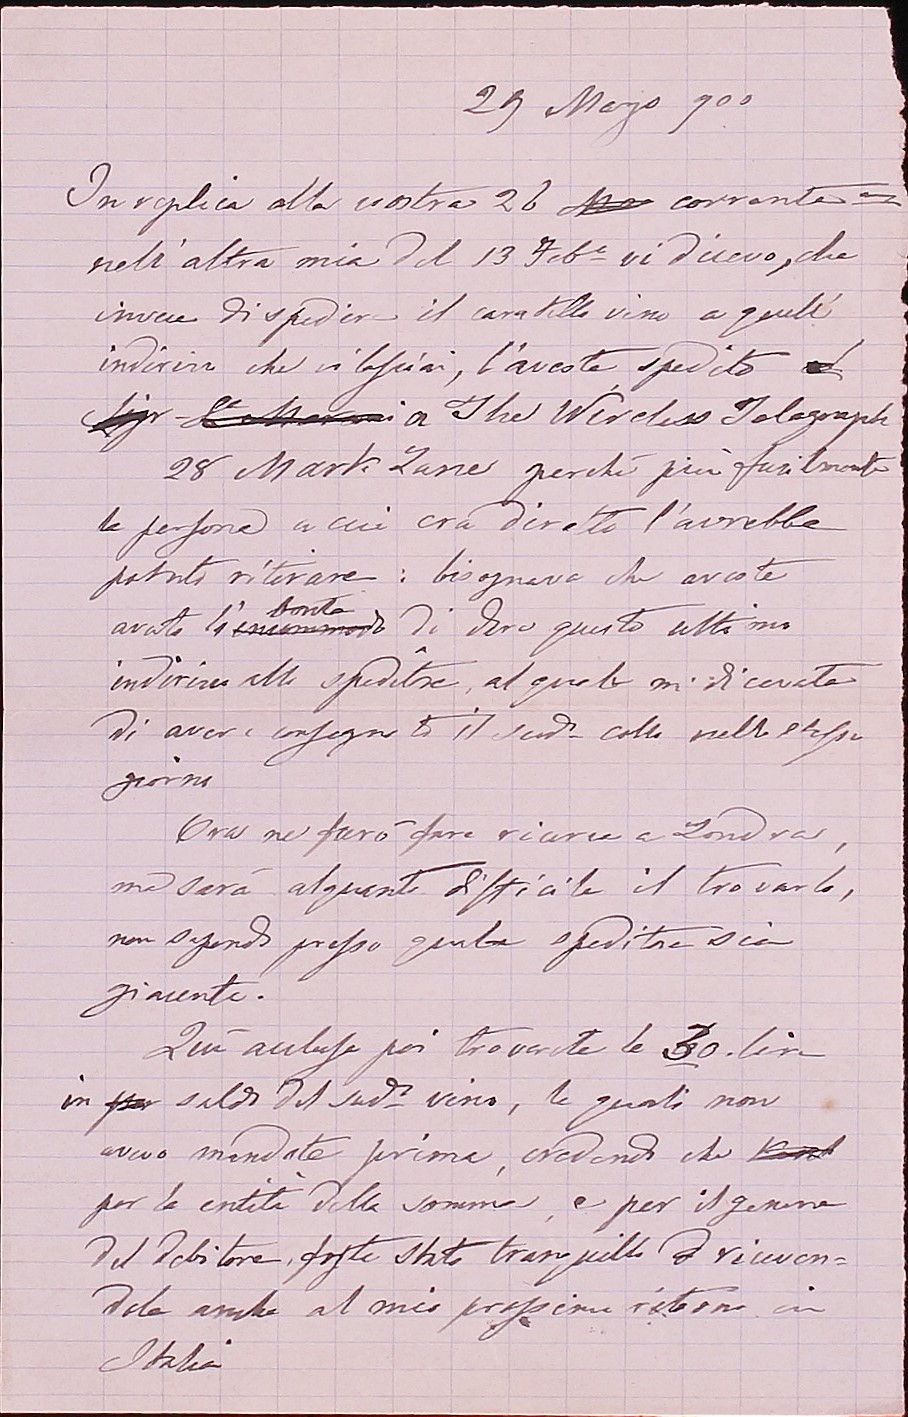 29 Marzo 900
In replica alla vostra 26 corrente
nell'altra mia del 13 Febº vi dicevo, che
invece di spedire il caratello vino a quell'
indirizzo che vi lasciai, l'aveste spedito al
Sigr a The Wireless Telegraph
28 Mark Lane perchè più facilmente
la persona a cui era diretto l'avrebbe
potuto ritirare : bisognava che aveste
avuto la bontà di dare questo ultimo
indirizzo allo speditore, al quale mi dicevate
di avere consegnato il sudº collo nello stesso
giorno
Ora ne farò fare ricerca a Londra,
ma sarà alquanto difficile il trovarlo,
non sapendo presso quale speditore sia
giacente.
Quì acclusa poi troverete le 30. lire
in per saldo del sudº vino, le quali non
avevo mandate prima, credendo che
per la entità della somma, e per il genere
del debitore, foste stato tranquillo riceven=
dole anche al mio prossimo ritorno in
Italia